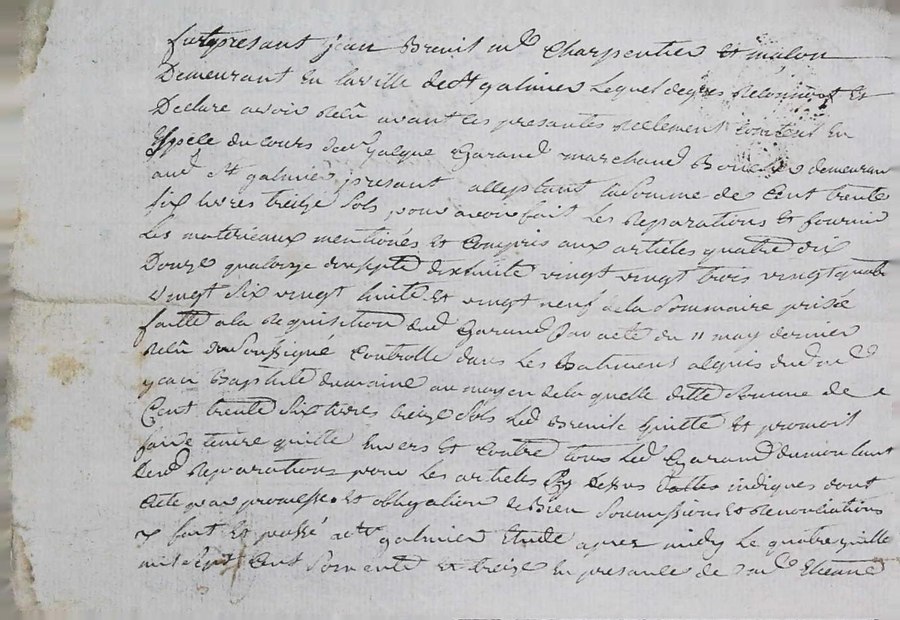 fut presant jean Breuil me Charpentier et mason
Demeurant en la ville de st galmier Lequel de gres Reconnoit Et
Declare avoir Reçu avant les presantes Reellement Contant En
Espece du cours de sr Garand marchand demeurant
aud st galmier present acceptant la somme de Cent trente
six livres treize sols pour avoir fait Les Reparations Et fournir
Les materiaux mentionés Et Compris aux articles quatre dix
Douze quatorze dixsept dixhuite vingt vingt trois vingt quatre
vingt six vingt huite Et vingt neuf de la Sommaire prisée
faitte a la Requisition dud Garand par acte du 11 may dernier
Reçu du Soussigné Controllé dans les Batiments alquis dud me
jean Baptiste dumaine au moyen de la quelle ditte Somme de
Cent trente Six livres treize Sols Led Breuil quitte Et promoit
faire tenire quitte Envers Et Contre tous Led Garand du montant
desd Reparations pour Les articles Cy dessus indiques dont
acte par promesse Et obligation de Bien Soumissions Et Renonciations
fait Et passé a st galmier Etude apres midy Le quatre juillet
mil sept Cent Soixante Et treize En presance de sr Etienne